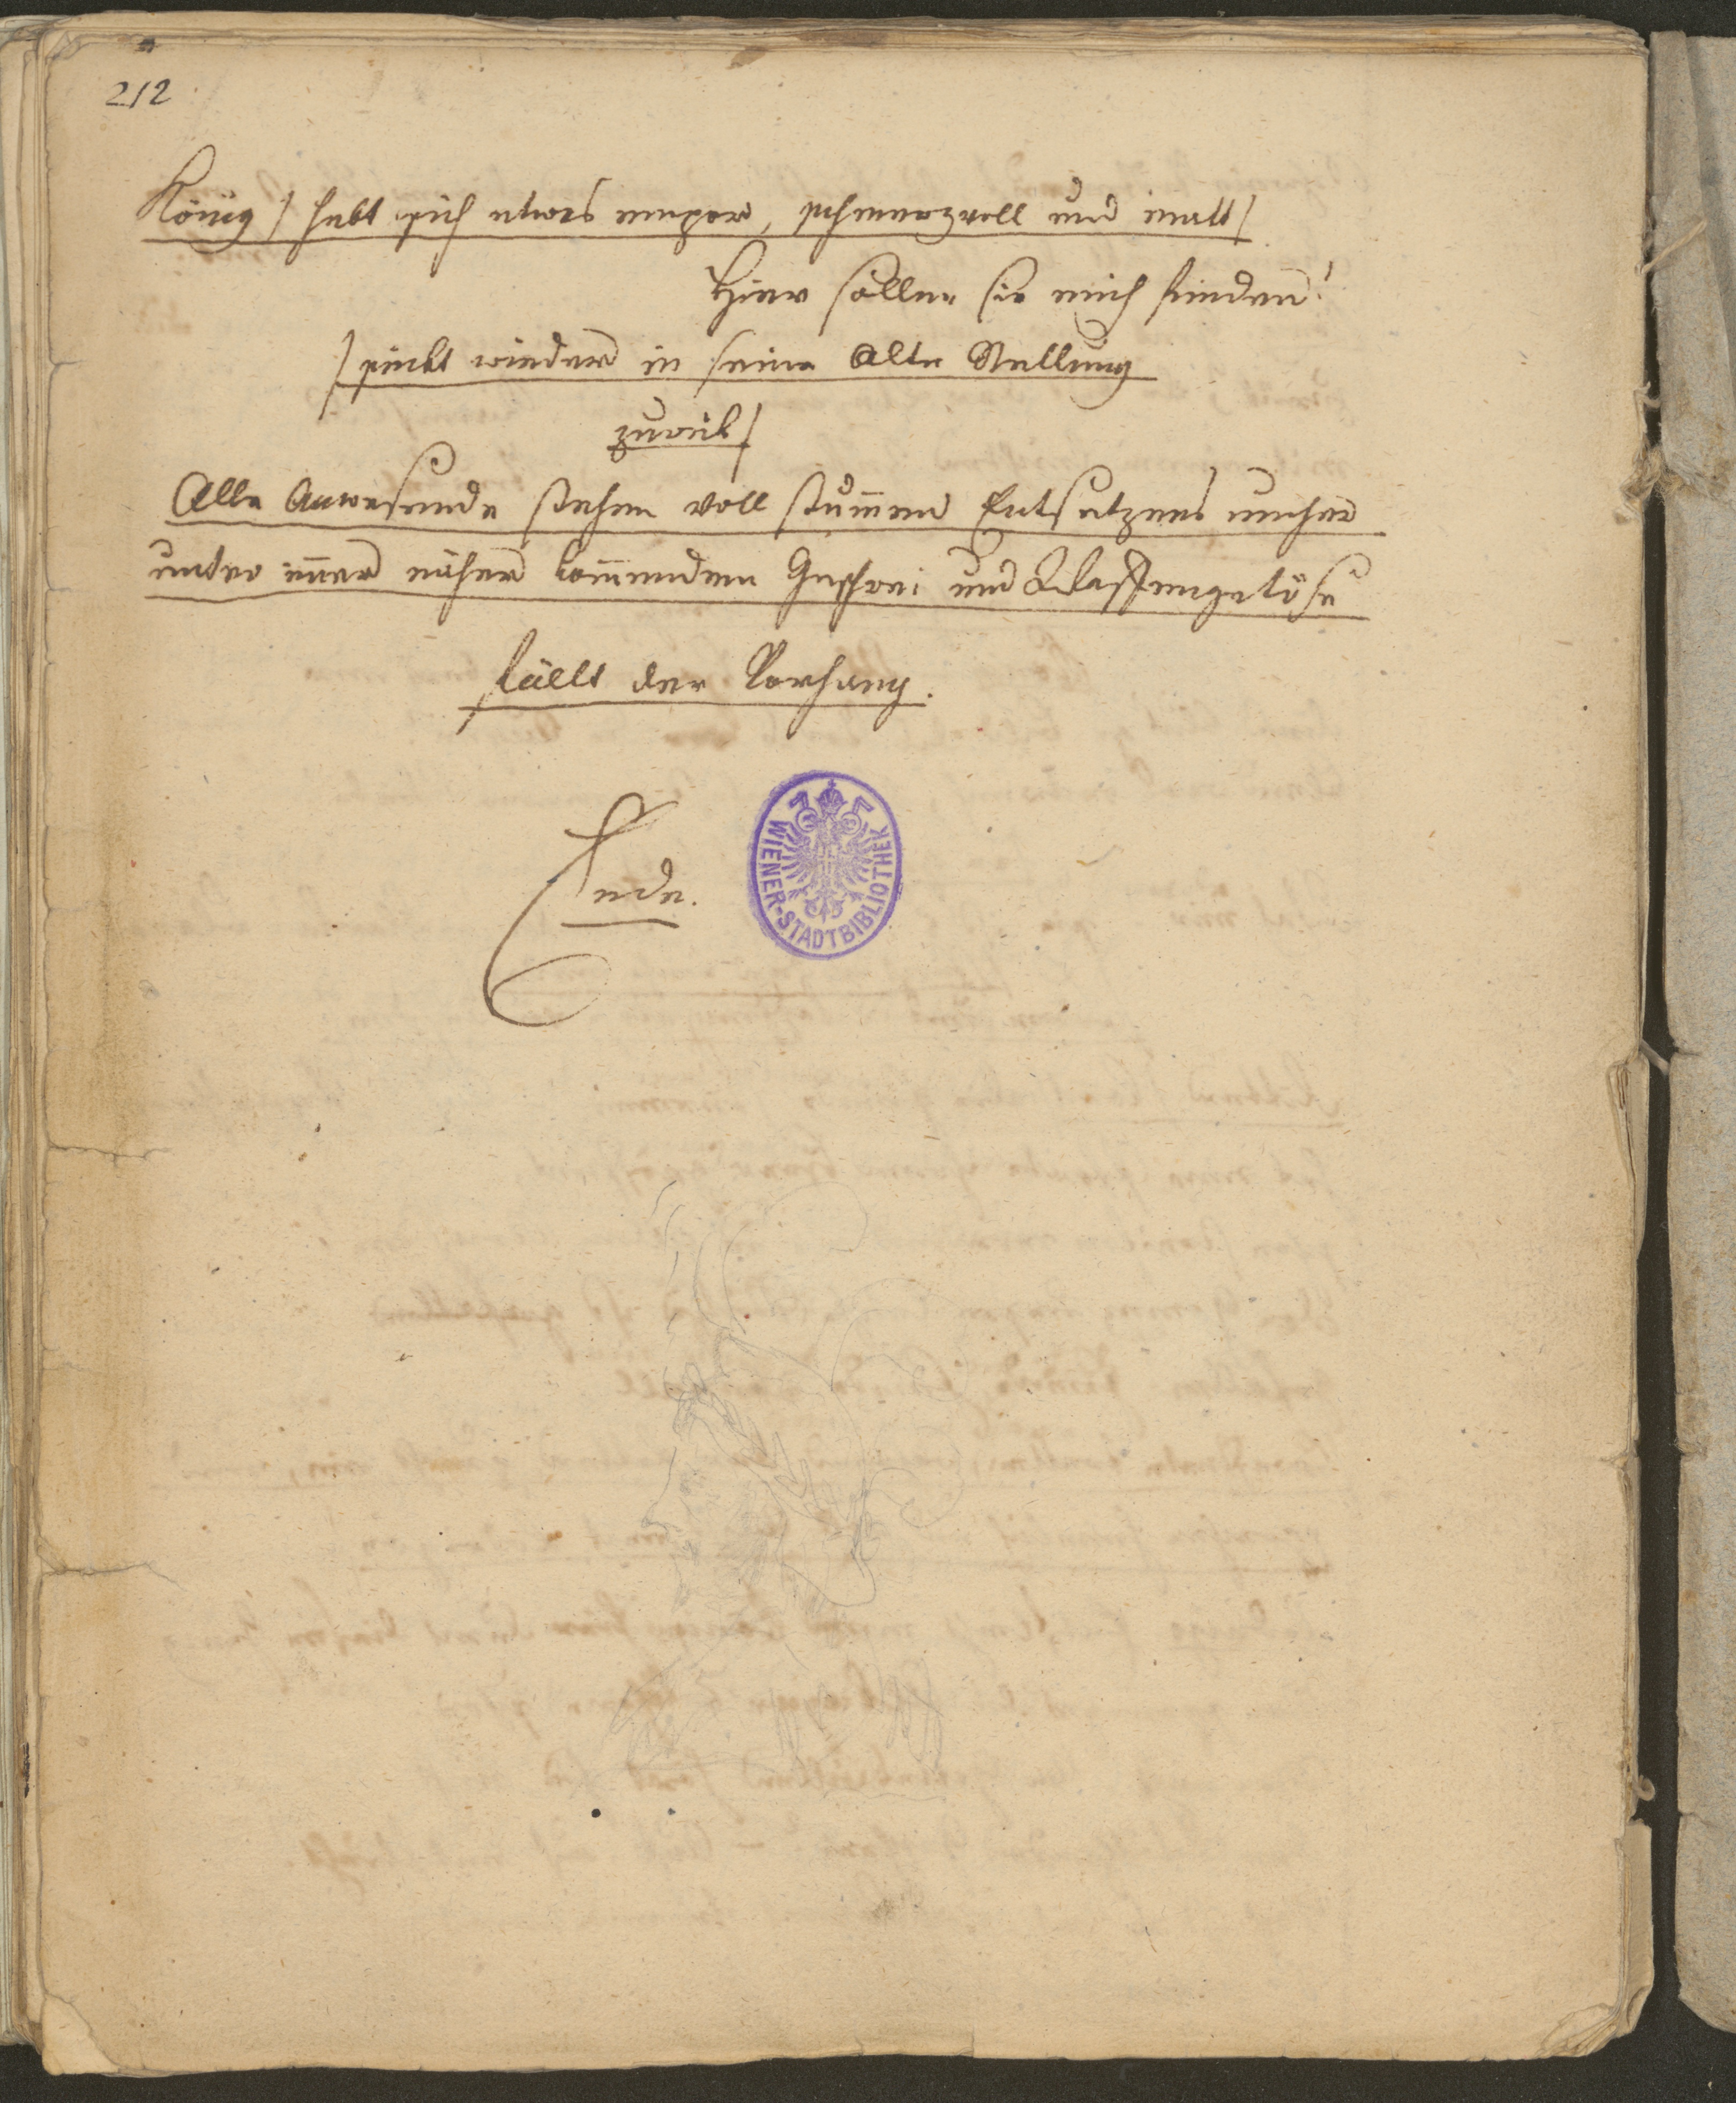 212
König / hebt sich etwas empor, schmerzvoll und matt /
Hier sollen sie mich finden!
/ sinkt wieder in seine Alte Stellung
zurück /
Alle Anwesende stehen voll stum̅en Entsetzens umher
unter im̅er näher kom̅endem Geschrei und Waffengetöse
fällt der Vorhang.
Ende.
WIENER-STADTBIBLIOTHEK